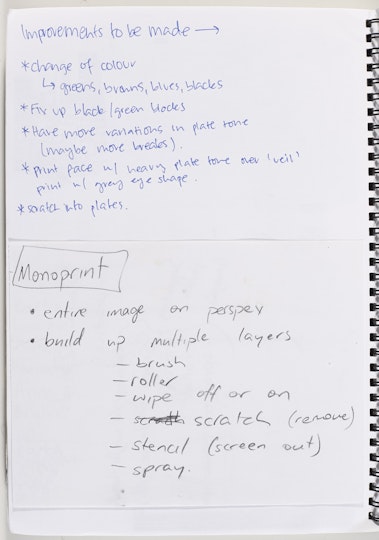 Improvements to be made →
* change of colour
↳ greens, browns, blues, blacks
* Fix up black/green blocks
* Have more variations in plate tone
(maybe more breaks).
* print face w/ heavy plate tone over 'veil'
print w/ grey eye shape.
* scratch into plates.
Monoprint
• entire image on perspex
• build up multiple layers
– brush
– roller
– wipe off or on
– scratch (remove)
– stencil (screen out)
– spray.